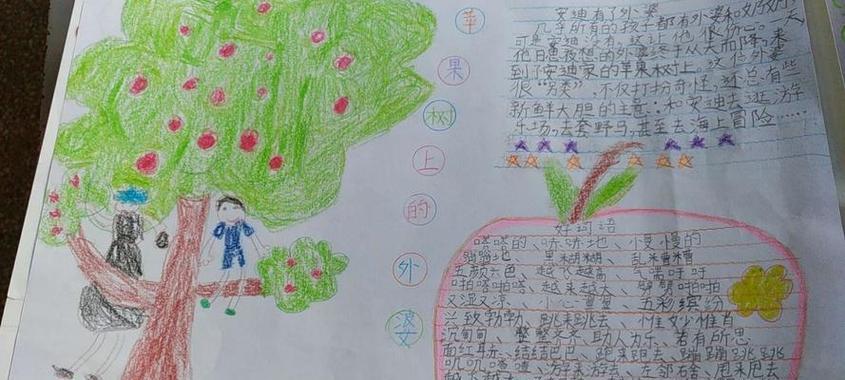 苹果树上的外婆
安迪有了外婆
几乎所有的孩子都有外婆和奶奶
可是安迪没有,这让他很伤心。一天
他日思夜想的外婆终于从天而降,来
到了安迪家的苹果树上。这位外婆
很“另类”,不仅打扮奇怪,还总有些
新鲜大胆的主意:和安迪去逛游
乐场,去套野马,甚至去海上冒险……
好词语
嗒嗒的、哧哧地、慢慢的
蹦蹦地、黑糊糊、乱糟糟
五颜六色、越飞越高、气喘吁吁
啪嗒啪嗒、越来越大、劈劈啪啪
又湿又凉、小心翼翼、五彩缤纷
兴致勃勃、跳来跳去、惟妙惟肖
沉甸甸、整整齐齐、助人为乐、若有所思
面红耳赤、结结巴巴、跑来跑去、蹦蹦跳跳
叽叽喳喳、游来游去、左邻右舍、甩来甩去